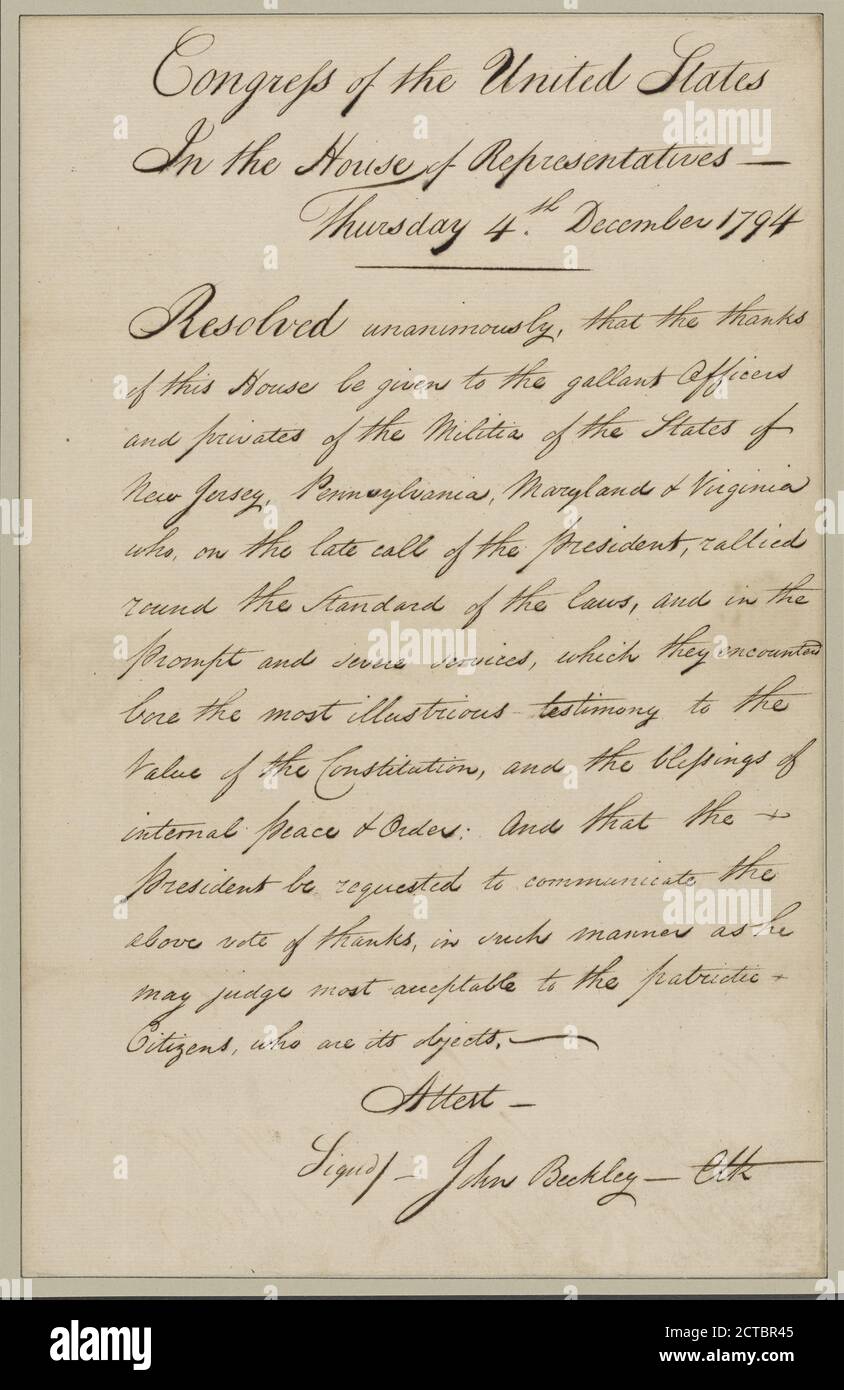 Congress of the United States
In the House of Representatives —
Thursday 4.th December 1794
Resolved unanimously, that the thanks
of this House be given to the gallant Officers
and privates of the Militia of the States of
New Jersey, Pennsylvania, Maryland & Virginia
who, on the late call of the President, rallied
round the Standard of the laws, and in the
prompt and severe services, which they encountered
bore the most illustrious testimony to the
Value of the Constitution, and the blessings of
internal peace & Order: And that the
President be requested to communicate the
above vote of thanks, in such manner as he
may judge most acceptable to the patriotic
Citizens, who are its objects. —
Attest —
Signd/ — John Beckley — Clk
alamy
Image ID: 2CTBR45
www.alamy.com